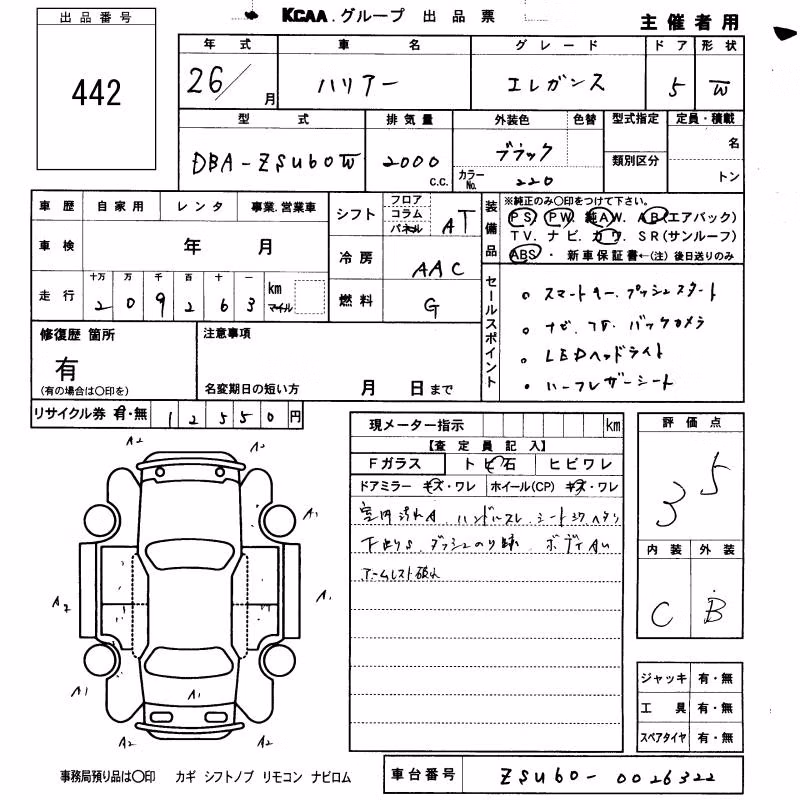 出品番号
442
KCAA.グループ 出品票
主催者用
年式 車名 グレード ドア 形状
26/ 月 ハリアー エレガンス 5 W
型式 排気量 外装色 色替 型式指定 定員・積載
DBA-ZSU60W 2000 C.C. ブラック 類別区分 名
カラーNo. 220 トン
車歴 自家用 レンタ 事業.営業車
車検 年 月
走行 十万 万 千 百 十 一 km マイル
2 0 9 2 6 3
シフト フロア コラム パネル AT
冷房 AAC
燃料 G
装備品
※純正のみ○印をつけて下さい。
PS. PW. 純AW. AB(エアバック)
TV. ナビ. カワ. SR(サンルーフ)
ABS・ 新車保証書←(注) 後日送りのみ
セールスポイント
。スマートキー.プッシュスタート
。ナビ.TV.バックカメラ
・LEDヘッドライト
・ハーフレザーシート
修復歴 箇所
有
(有の場合は○印を)
注意事項
名変期日の短い方 月 日まで
リサイクル券 有・無 12550円
現メーター指示 km
【査定員記入】
Fガラス トビ石 ヒビワレ
ドアミラー キズ・ワレ ホイール(CP) キズ・ワレ
室内汚れA. ハンドルスレ. シート スワ ヘタリ
下廻りS. ダッシュのり跡. ボディAU
アームレスト破れ
評価点
3.5
内装 外装
C B
ジャッキ 有・無
工具 有・無
スペアタイヤ 有・無
A2 A2
A1
A2 A1
A1 A1 A1
A2 A2
事務局預り品は○印 カギ シフトノブ リモコン ナビロム
車台番号 ZSU60-0026322